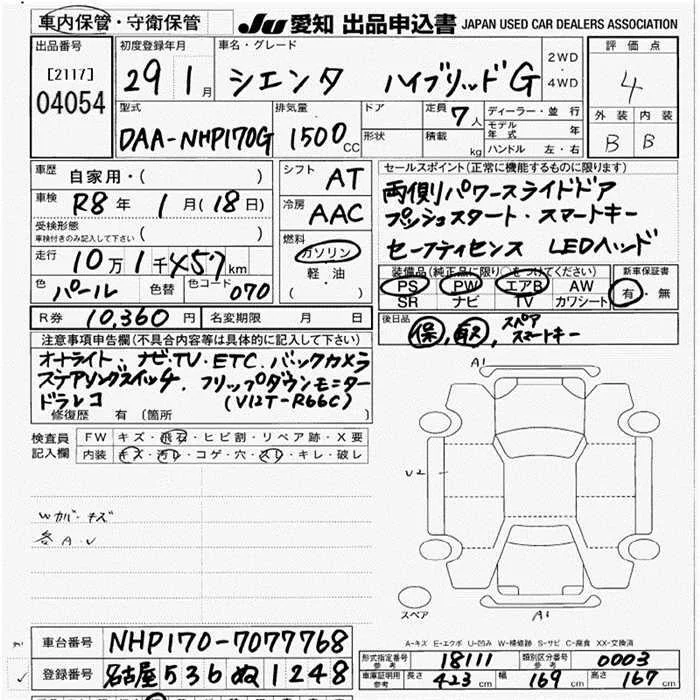 車内保管・守衛保管
JU 愛知 出品申込書 JAPAN USED CAR DEALERS ASSOCIATION
出品番号
[2117]
04054
初度登録年月
29 1月
車名・グレード
シエンタ ハイブリッドG
2WD
・
4WD
評価点
4
外装 内装
B B
型式
DAA-NHP170G
排気量
1500CC
ドア
形状
定員 7人
積載 kg
ディーラー・並行
モデル年式 年
ハンドル 左・右
車歴 自家用・( )
車検 R8年 1月(18日)
受検形態
車検付きのみ記入して下さい ( )
走行 10万1千457km
色 パール 色替 色コード 070
シフト AT
冷房 AAC
燃料
ガソリン
軽・油
( )
セールスポイント(正常に機能するものに限ります)
両側パワースライドドア
プッシュスタート・スマートキー
セーフティセンス LEDヘッド
装備品(純正品に限り○をつけてください)
PS PW エアB AW
SR ナビ TV カワシート
新車保証書
有・無
R券 10,360円 名変期限 月 日
後日品
保, 取, スペアスマートキー
注意事項申告欄(不具合内容等は具体的に記入して下さい)
オートライト・ナビ・TV・ETC・バックカメラ
ステアリングスイッチ・フリップダウンモニター
ドラレコ (V12T-R66C)
修復歴 有(箇所 )
検査員記入欄
FW キズ・飛石・ヒビ割・リペア跡・X要
内装 キズ・汚レ・コゲ・穴・スレ・キレ・破レ
Wカバーキズ
各A.U
A1
U2
スペア
A1
A-キズ E-エクボ U-凹み W-補修跡 S-サビ C-腐食 XX-交換済
車台番号 NHP170-7077768
登録番号 名古屋 536 ぬ 1248
形式指定番号
参考 18111
類別区分番号
参考 0003
車庫証明用
参考 長さ 423cm 幅 169cm 高さ 167cm